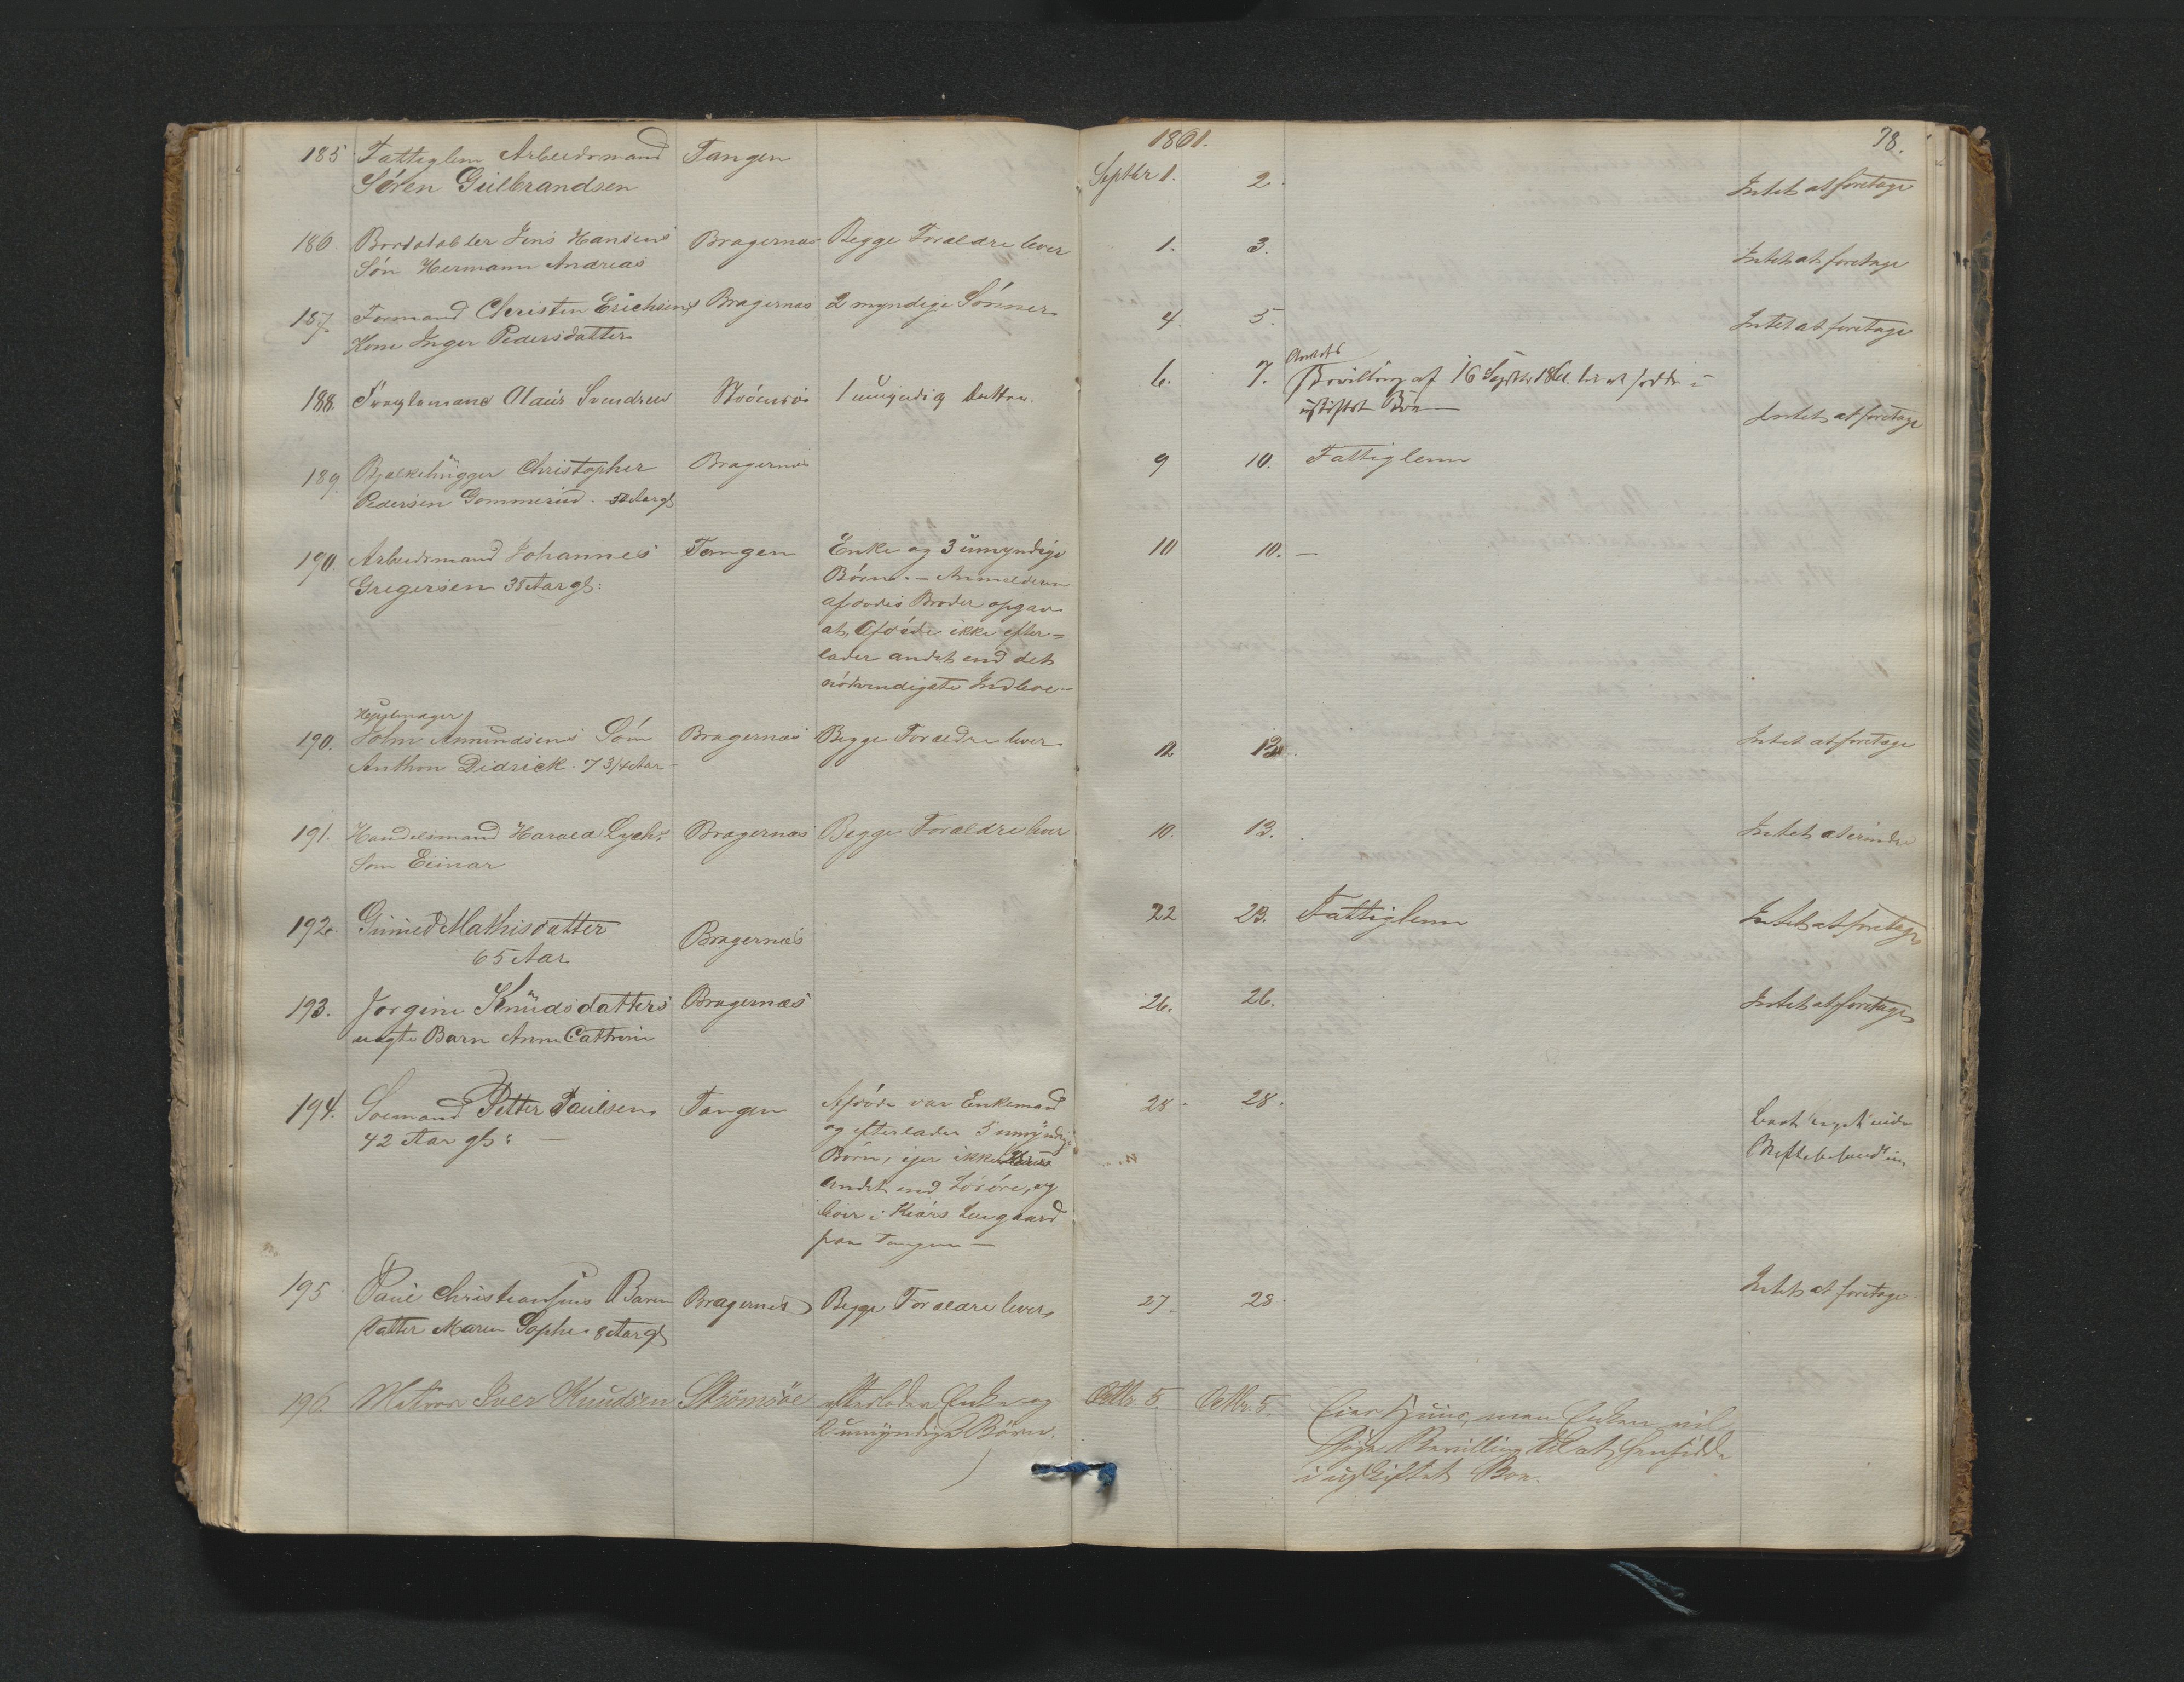 1861.
78.
185 Fattiglem Arbeidsmand Tangen Septbr 1. 2. Intet at foretage
Sören Gulbrandsen
186. Bordstabler Jens Hansens Bragernæs Begge Forældre lever 1. 3. Intet at foretage
Sön Hermann Andreas
187. Formand Christen Erichsens Bragernæs 2 myndige Sönner 4. 5. Intet at foretage
Kone Inger Pedersdatter
188. Olaus Svendsen Strömsö 1 umyndig Datter. 6. 7. Bevilling af 16 Septbr 1861 til at sidde i
uskiftet Boe — Intet at foretage
189. Bjelkehugger Christopher Bragernæs 9 10. Fattiglem
Pedersen Gommerud. 50 Aar gl
190. Arbeidsmand Johannes Tangen Enke og 3 umyndige 10 10. —
Gregersen 38 Aar gl: Börn. — Anmelderen
afdödes Broder opgav
at Afdöde ikke efter=
lader andet end det
nödvendigste Indboe —
190. John Amundsens Sön Bragernæs Begge Forældre lever 12 13. Intet at foretage
Anthon Didrick. 7 3/4 Aar —
191. Handelsmand Harald Lychs Bragernæs Begge Forældre lever 10. 13. Intet at erindre
Sön Einar
192. Gunild Mathisdatter Bragernæs 22 23. Fattiglem Intet at foretage
65 Aar
193. Jorgine Knudsdatters Bragernæs 26. 26. Intet at foretage
uægte Barn Anne Cattrine
194. Soemand Petter Paulsen Tangen Afdöde var Enkemand 28 28.
42 Aar gl: — og efterlader 5 umyndige
Börn, ejer ikke
andet end Lösöre, og
boer i Kiærs Leegaard
paa Tangen —
195 Paul Christiansens Barn Bragernes Begge Forældre lever 27. 28. Intet at foretage
Datter Maren Sophe 8 Aar gl
196. Matros Iver Knudsen Strömsöe efterlader Enke og Octbr. 5. Octbr. 5. Eier Huus, men Enken vil
2 umyndige Börn. söge Bevilling til at hensidde
i uskiftet Boe.